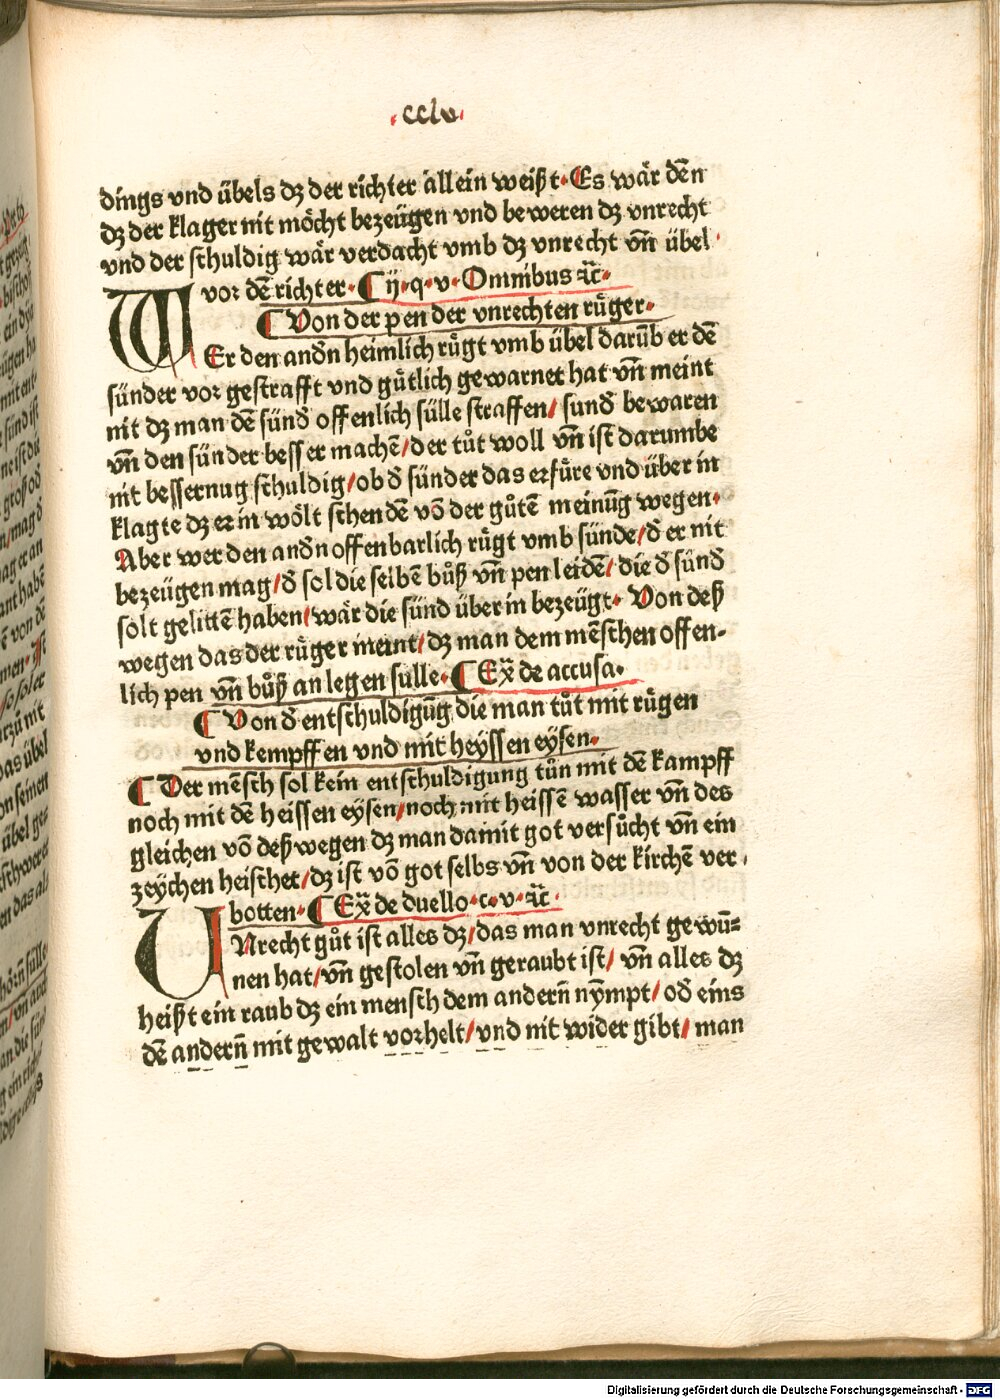 .cclv.
dings vnd übels dz der richter allein weißt. Es wär deñ
dz der klager nit möcht bezeügen vnd beweren dz vnrecht
vnd der schuldig wär verdacht vmb dz vnrecht vñ übel
vor dẽ richter. ¶ ij. q. v. Omnibus ꝛc̃.
¶ Von der pen der vnrechten růger.
WEr den andn̄ heimlich růgt vmb übel darūb er dẽ
sünder vor gestrafft vnd gůtlich gewarnet hat vñ meint
nit dz man dẽ sünd offenlich sülle straffen/ sund bewaren
vñ den sünder besser machẽ/ der tůt woll vñ ist darumbe
nit bessernug schuldig/ ob đ sünder das erfůre vnd über in
klagte dz er in wölt schendẽ võ der gůtẽ meinūg wegen.
Aber wer den andn̄ offenbarlich růgt vmb sünde/ đ er nit
bezeügen mag/ đ sol die selbẽ bůß vñ pen leidẽ/ die đ sünd
solt gelittẽ haben/ wär die sünd über in bezeügt. Von deß
wegen das der růger meint/ dz man dem mẽschen offen-
lich pen vñ bůß anlegen sulle. ¶ Ex̃ de accusa.
¶ Von đ entschuldigūg die man tůt mit růgen
vnd kempffen vnd mit heyssen eysen.
¶ Der mẽsch sol kein entschuldigung tůn mit dẽ kampff
noch mit dẽ heissen eysen/ noch mit heissẽ wasser vñ des
gleichen võ deß wegen dz man damit got versůcht vñ ein
zeychen heischet/ dz ist võ got selbs vñ von der kirchẽ ver
botten. ¶ Ex̃ de duello. c. v. ꝛc̃.
UNrecht gůt ist alles dz/ das man vnrecht gewū=
nen hat/ vñ gestolen vñ geraubt ist/ vñ alles dz
heißt ein raub dz ein mensch dem andern̄ nȳmpt/ ođ eins
dẽ andern̄ mit gewalt vorhelt/ vnd nit wider gibt/ man
Digitalisierung gefördert durch die Deutsche Forschungsgemeinschaft - DFG